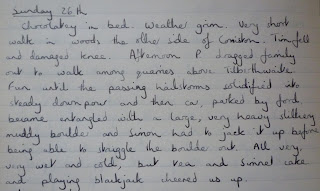 Sunday 26th
Chocolatey in bed. Weather grim. Very short
walk in woods the other side of Coniston. Tim fell
and damaged knee. Afternoon P. dragged family
out to walk among quarries above Tilberthwaite.
Fun until the passing hailstorms solidified into
steady downpour and then car, parked by ford,
became entangled with a large, very heavy slithery
muddy boulder and Simon had to jack it up before
being able to struggle the boulder out. All very,
very wet and cold, but tea and simnel cake
and playing blackjack cheered us up.